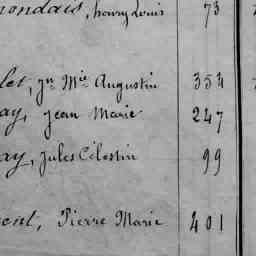 mondais, henry Louis 73
let, Jn Mie Augustin 354
ay, Jean Marie 247
ay, Jules Célestin 99
ent, Pierre Marie 401